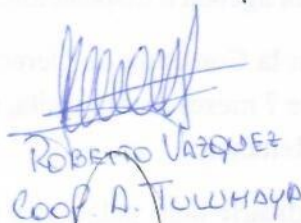 ROBERTO VAZQUEZ
COOP. A. TULUMAYA